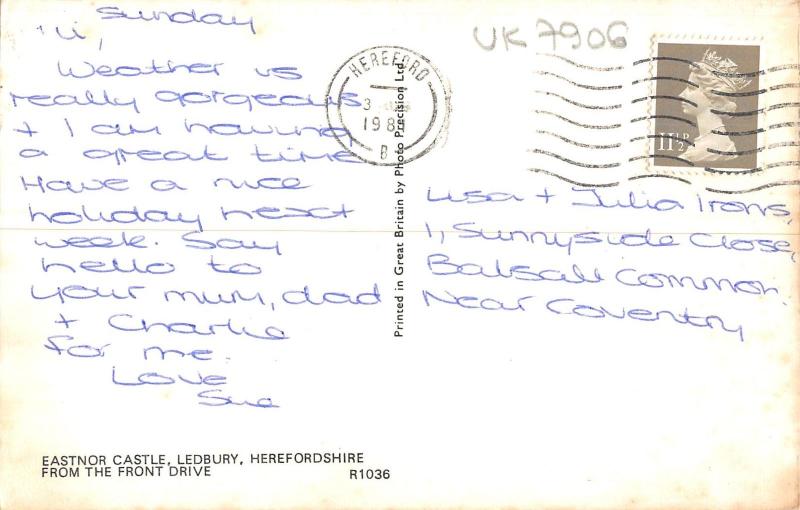 Sunday
Hi,
Weather is
really gorgeous
+ I am having
a great time
Have a nice
holiday next
week. Say
hello to
your mum, dad
+ Charlie
for me.
Love
Sue
EASTNOR CASTLE, LEDBURY, HEREFORDSHIRE
FROM THE FRONT DRIVE
R1036
Printed in Great Britain by Photo Precision Ltd.
HEREFORD
3
198
B
UK 7906
11½P
Lisa + Julia Irons,
1, Sunnyside Close,
Balsall Common.
Near Coventry